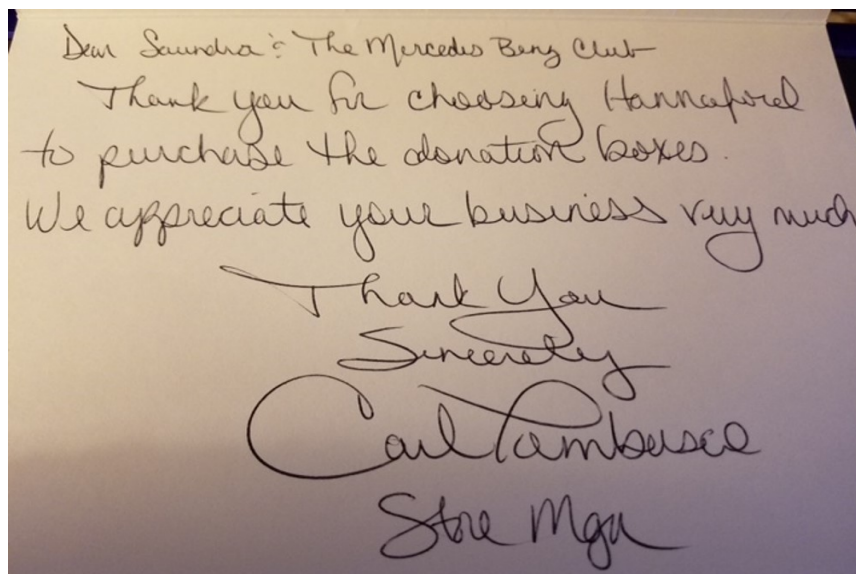 Dear Saundra & The Mercedes Benz Club
Thank you for choosing Hannaford
to purchase the donation boxes.
We appreciate your business very much
Thank You
Sincerely
Carl
Store Mgr